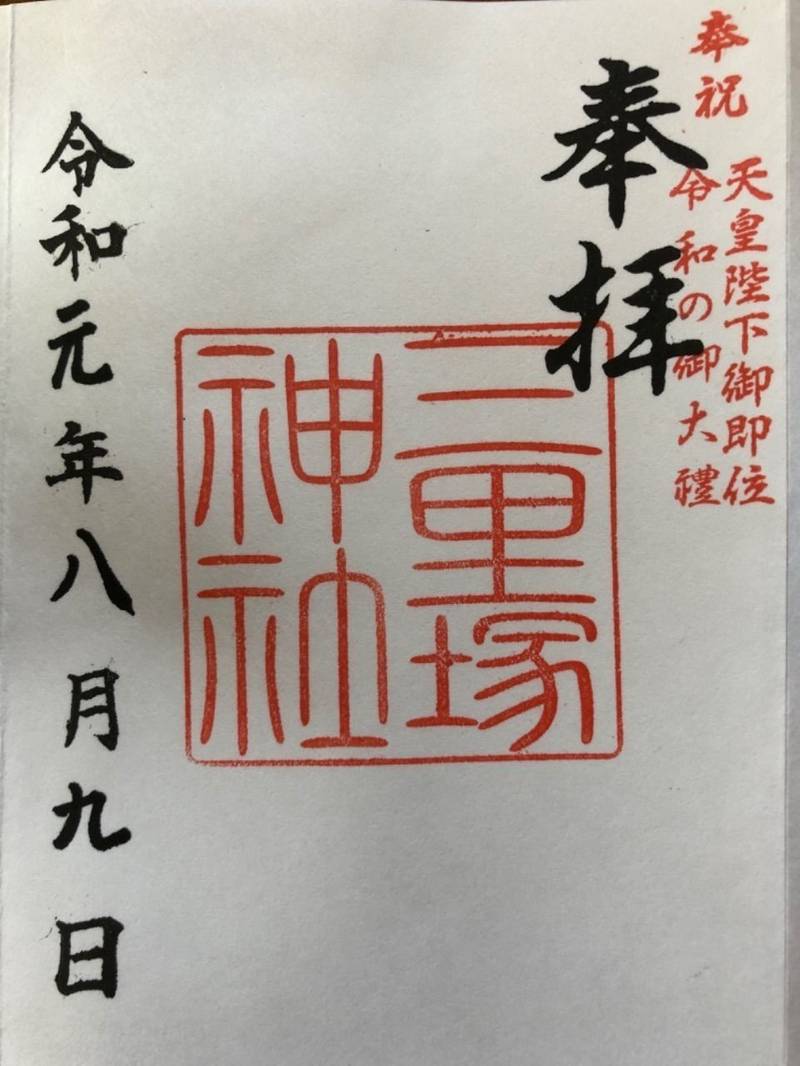 奉祝
天皇陛下御即位
令和の御大禮
奉拝
三里塚
神社
令和元年八月九日